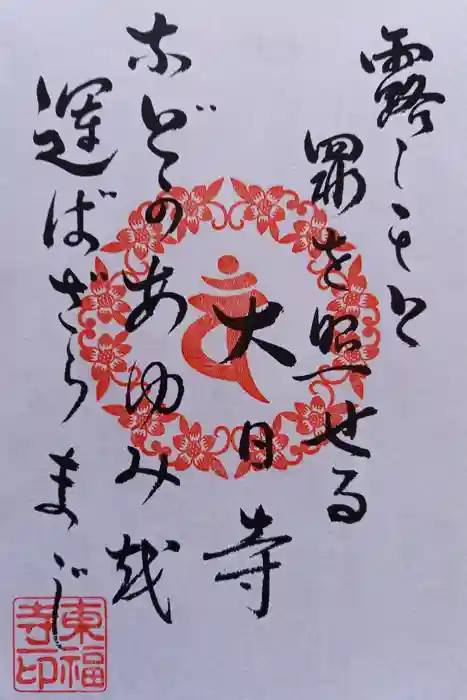 露しもと
罪を照せる
大日寺
などかあゆみ越
運ばざらまじ
東福
寺印